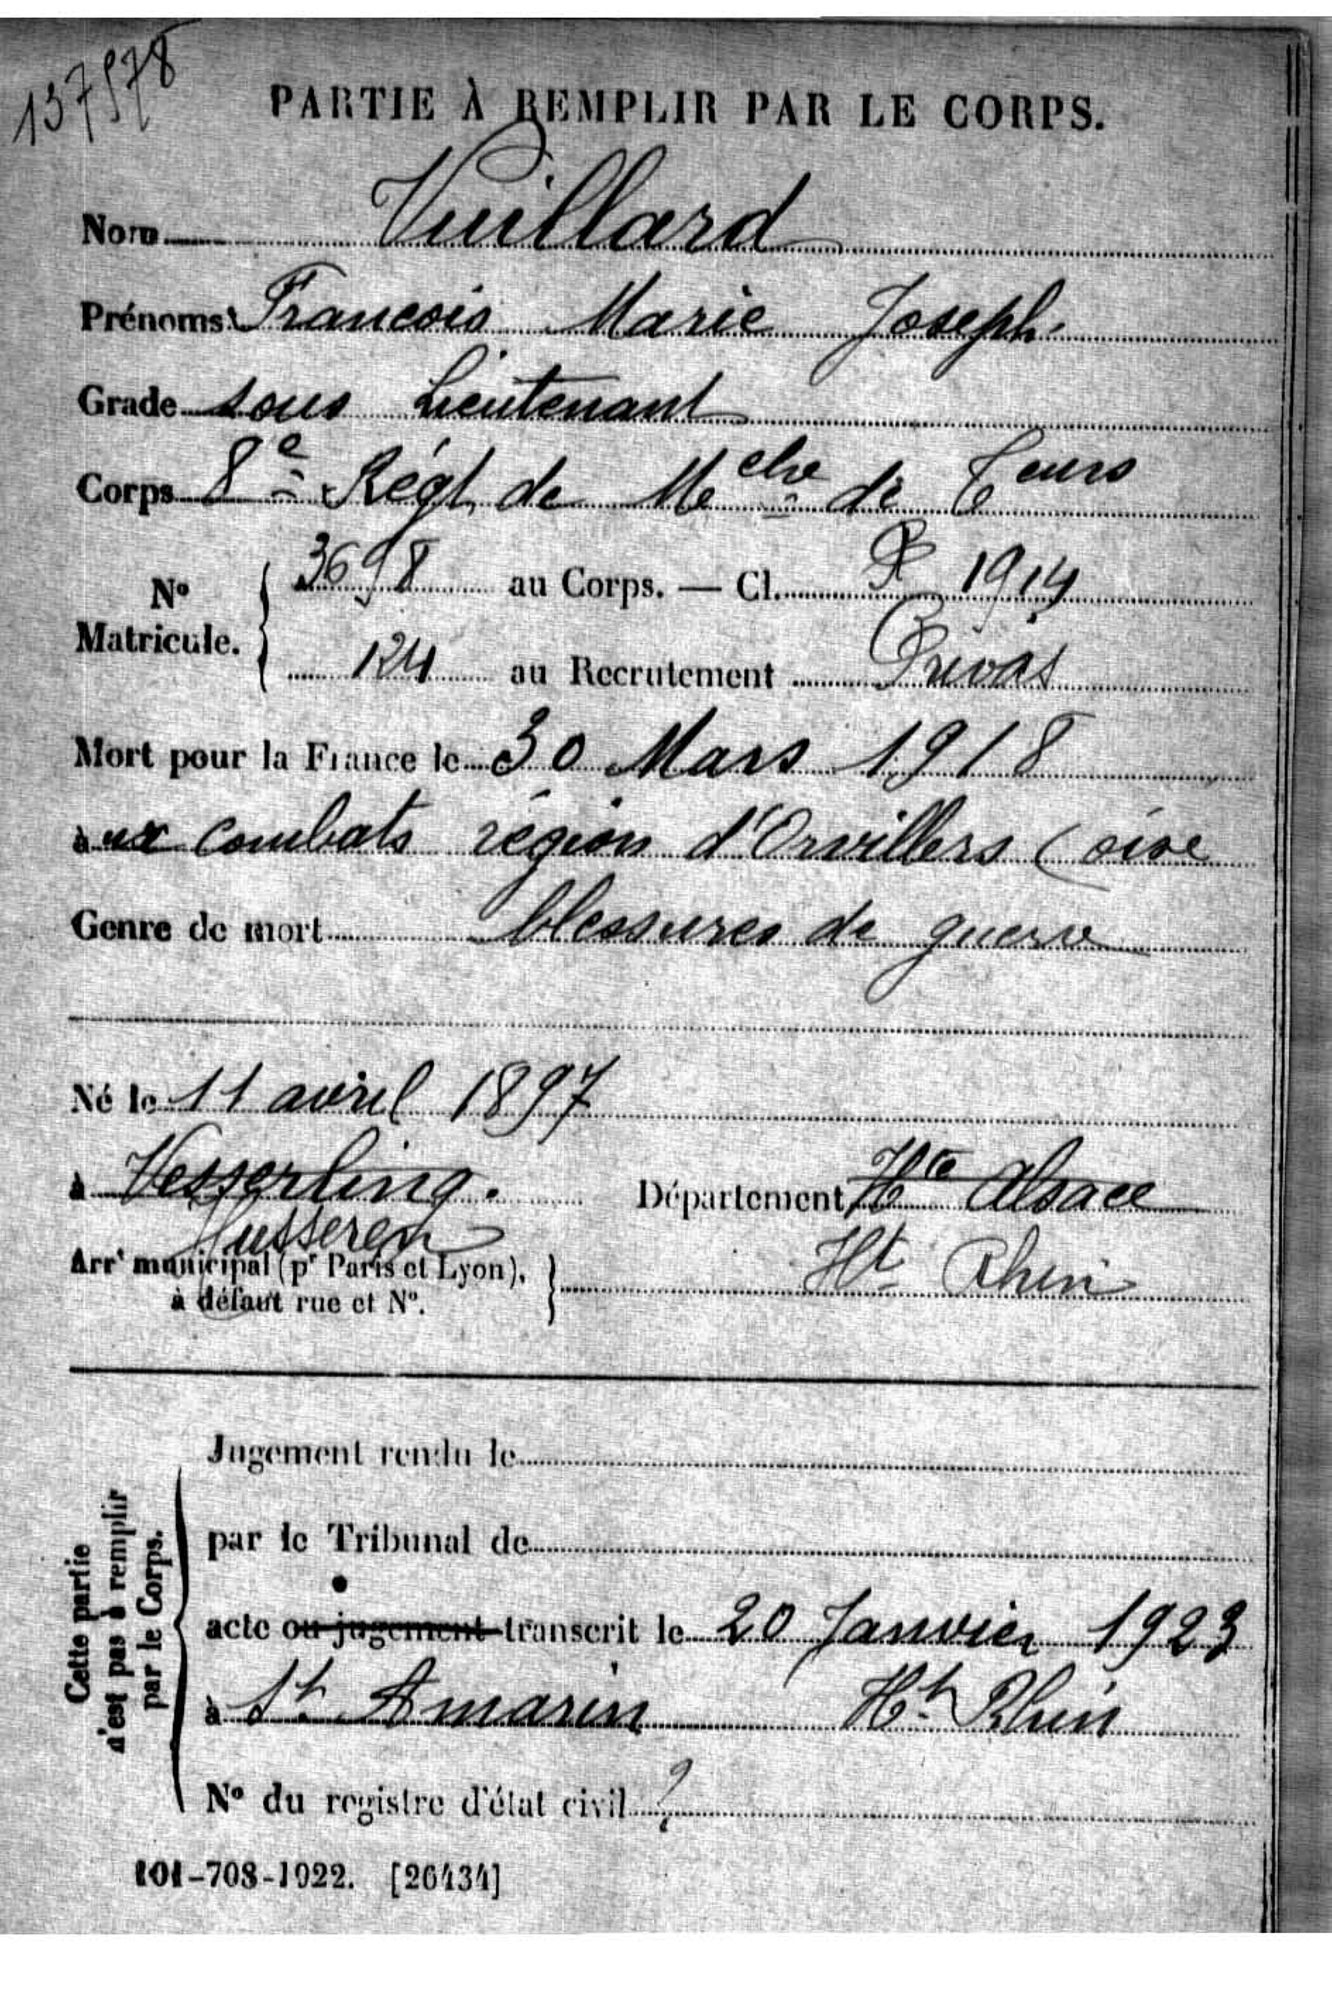 137578
PARTIE À REMPLIR PAR LE CORPS.
Nom Vuillard
Prénoms Francois Marie Joseph.
Grade sous Lieutenant
Corps 8e Régt de Mche de Teurs
No Matricule. 3698 au Corps. — Cl. R 1914
124 au Recrutement Privas
Mort pour la France le 30 Mars 1918
à ux combats région d'Orvillers (oise
Genre de mort blessures de guerre
Né le 11 avril 1897
à Vesserling. Département Hte Alsace
Husseren Ht Rhin
Arrt municipal (pr Paris et Lyon),
à défaut rue et No.
Jugement rendu le
par le Tribunal de
acte ou jugement transcrit le 20 Janvier 1923
à St Amarin Ht Rhin
No du registre d'état civil ?
Cette partie
n'est pas à remplir
par le Corps.
101-708-1922. [26434]